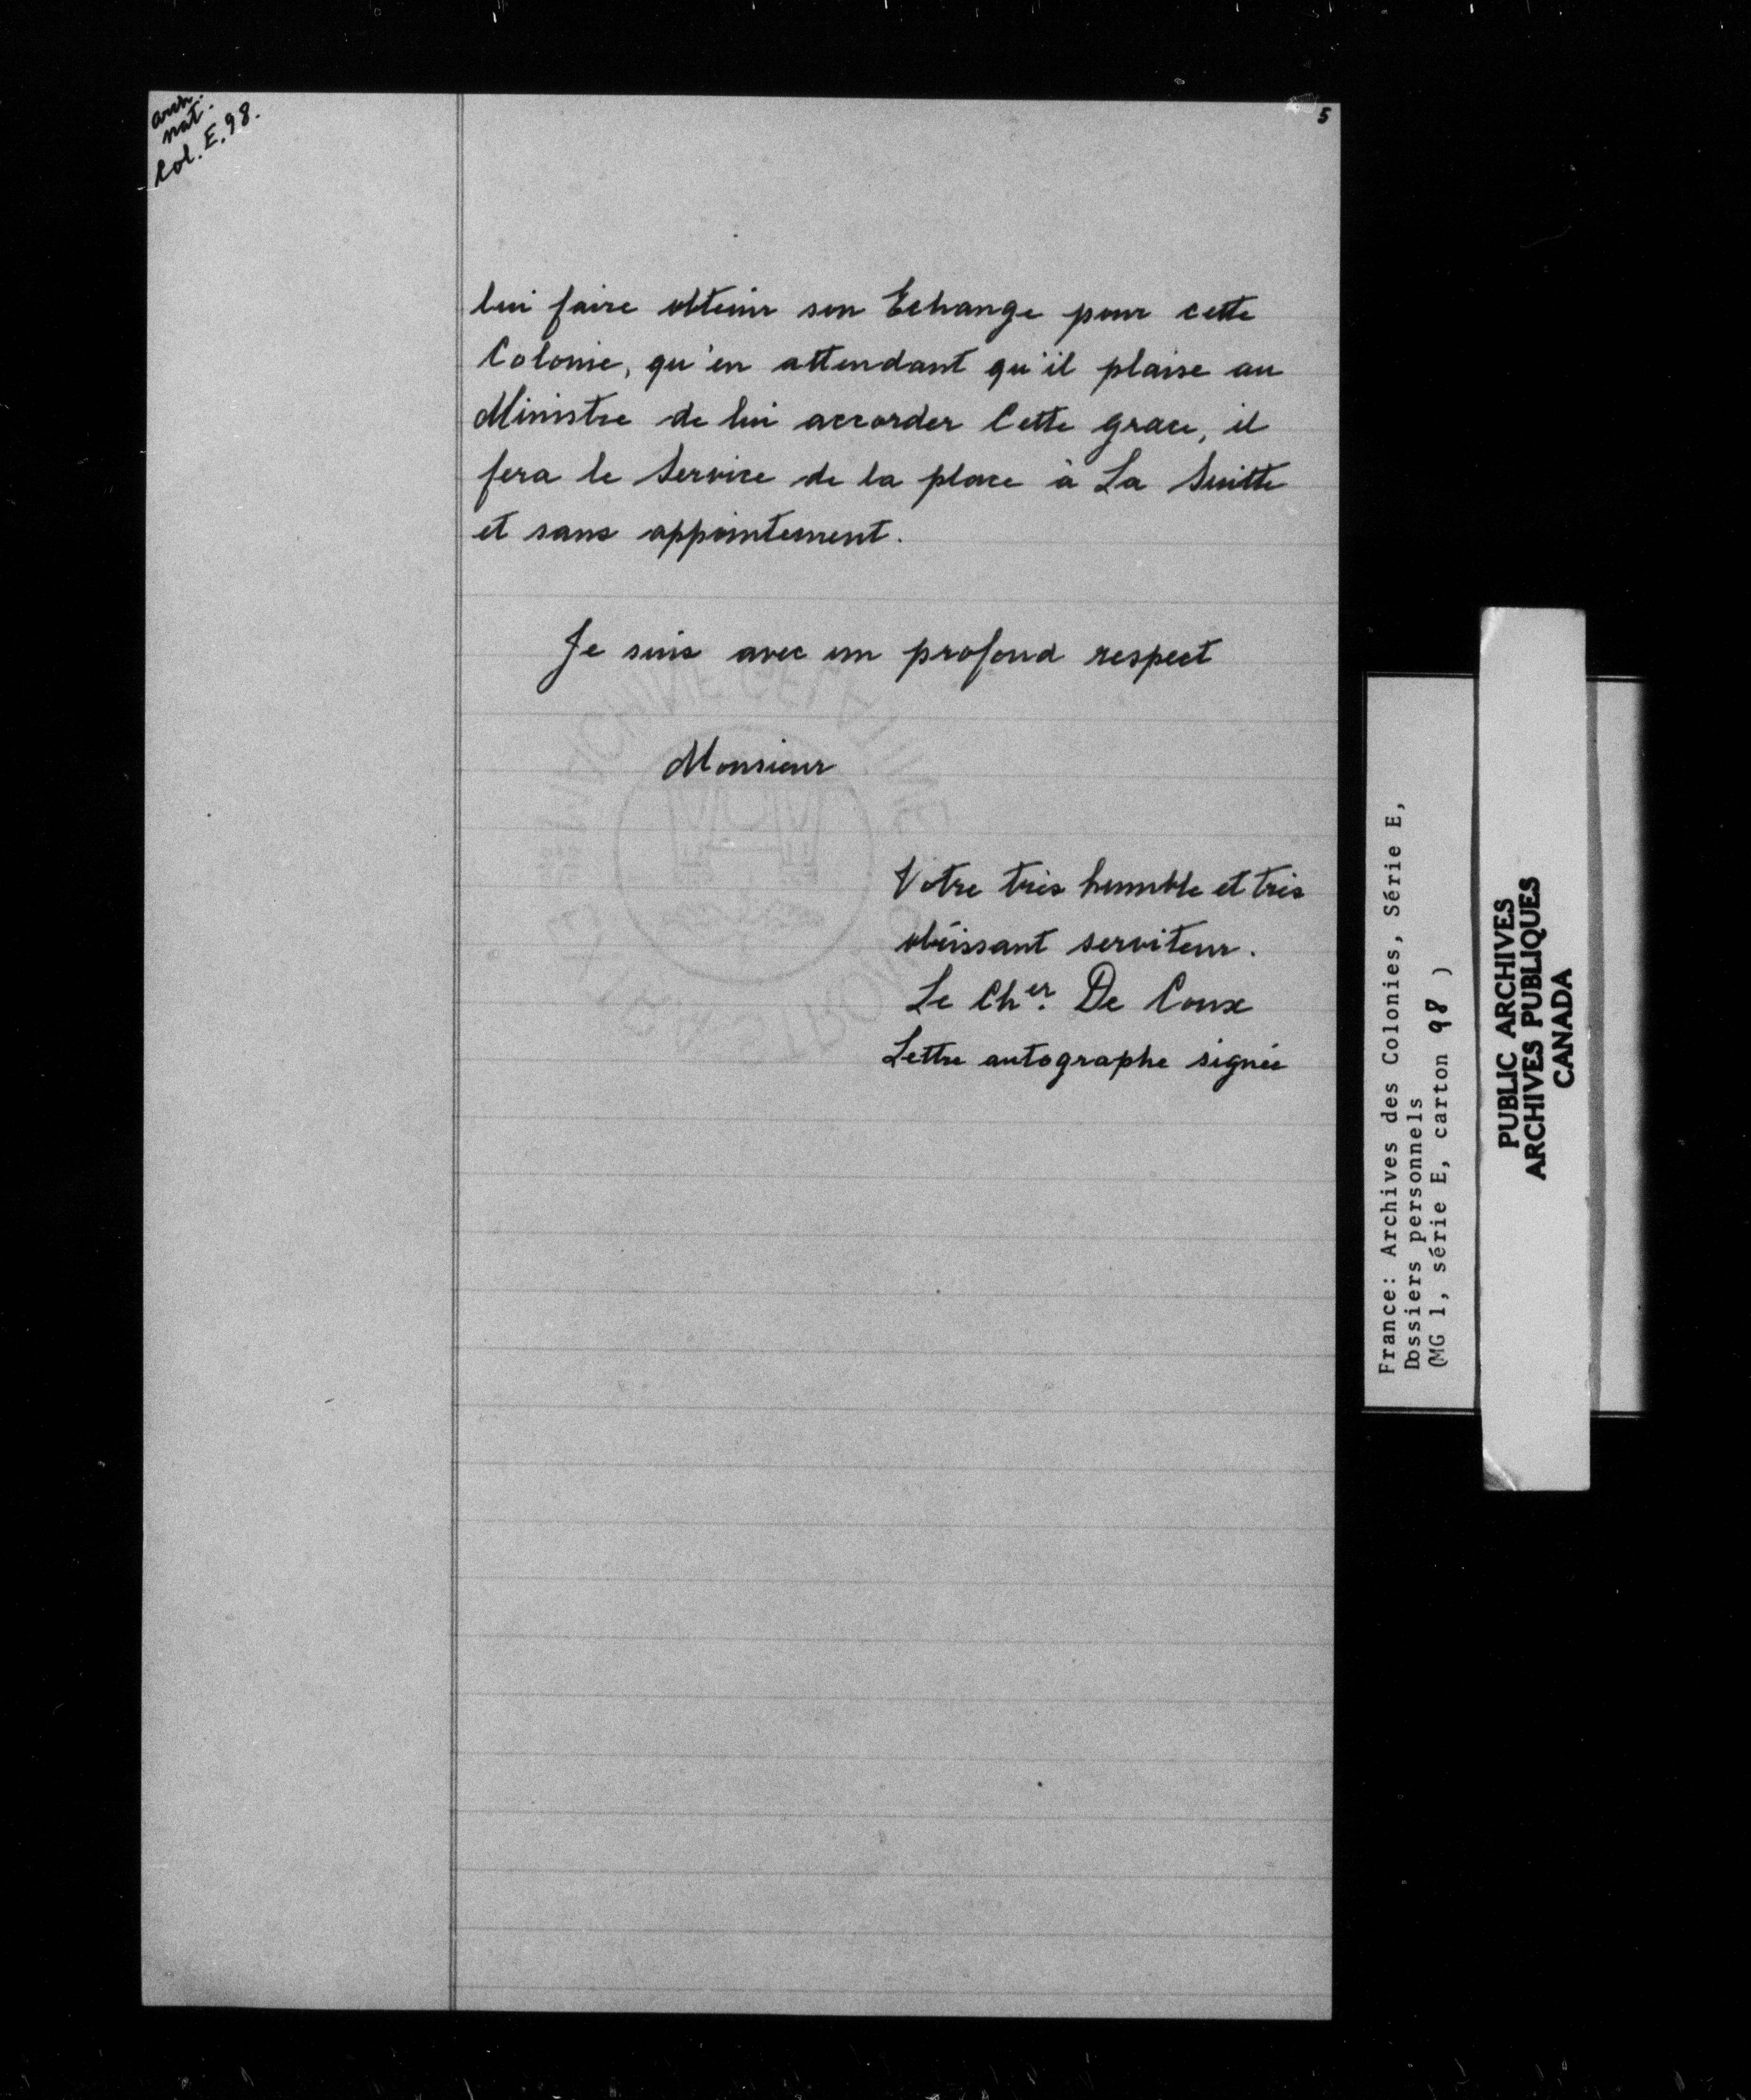 arch.
nat.
Col. E. 98.
5
lui faire obtenir son Echange pour cette
Colonie, qu'en attendant qu'il plaise au
Ministre de lui accorder Cette grace, il
fera le Service de la place à La Suitte
et sans appointement.
Je suis avec un profond respect
Monsieur
Votre très humble et très
obéissant serviteur.
Le Cher. De Coux
Lettre autographe signée
France: Archives des Colonies, Série E,
Dossiers personnels
(MG 1, série E, carton 98 )
PUBLIC ARCHIVES
ARCHIVES PUBLIQUES
CANADA